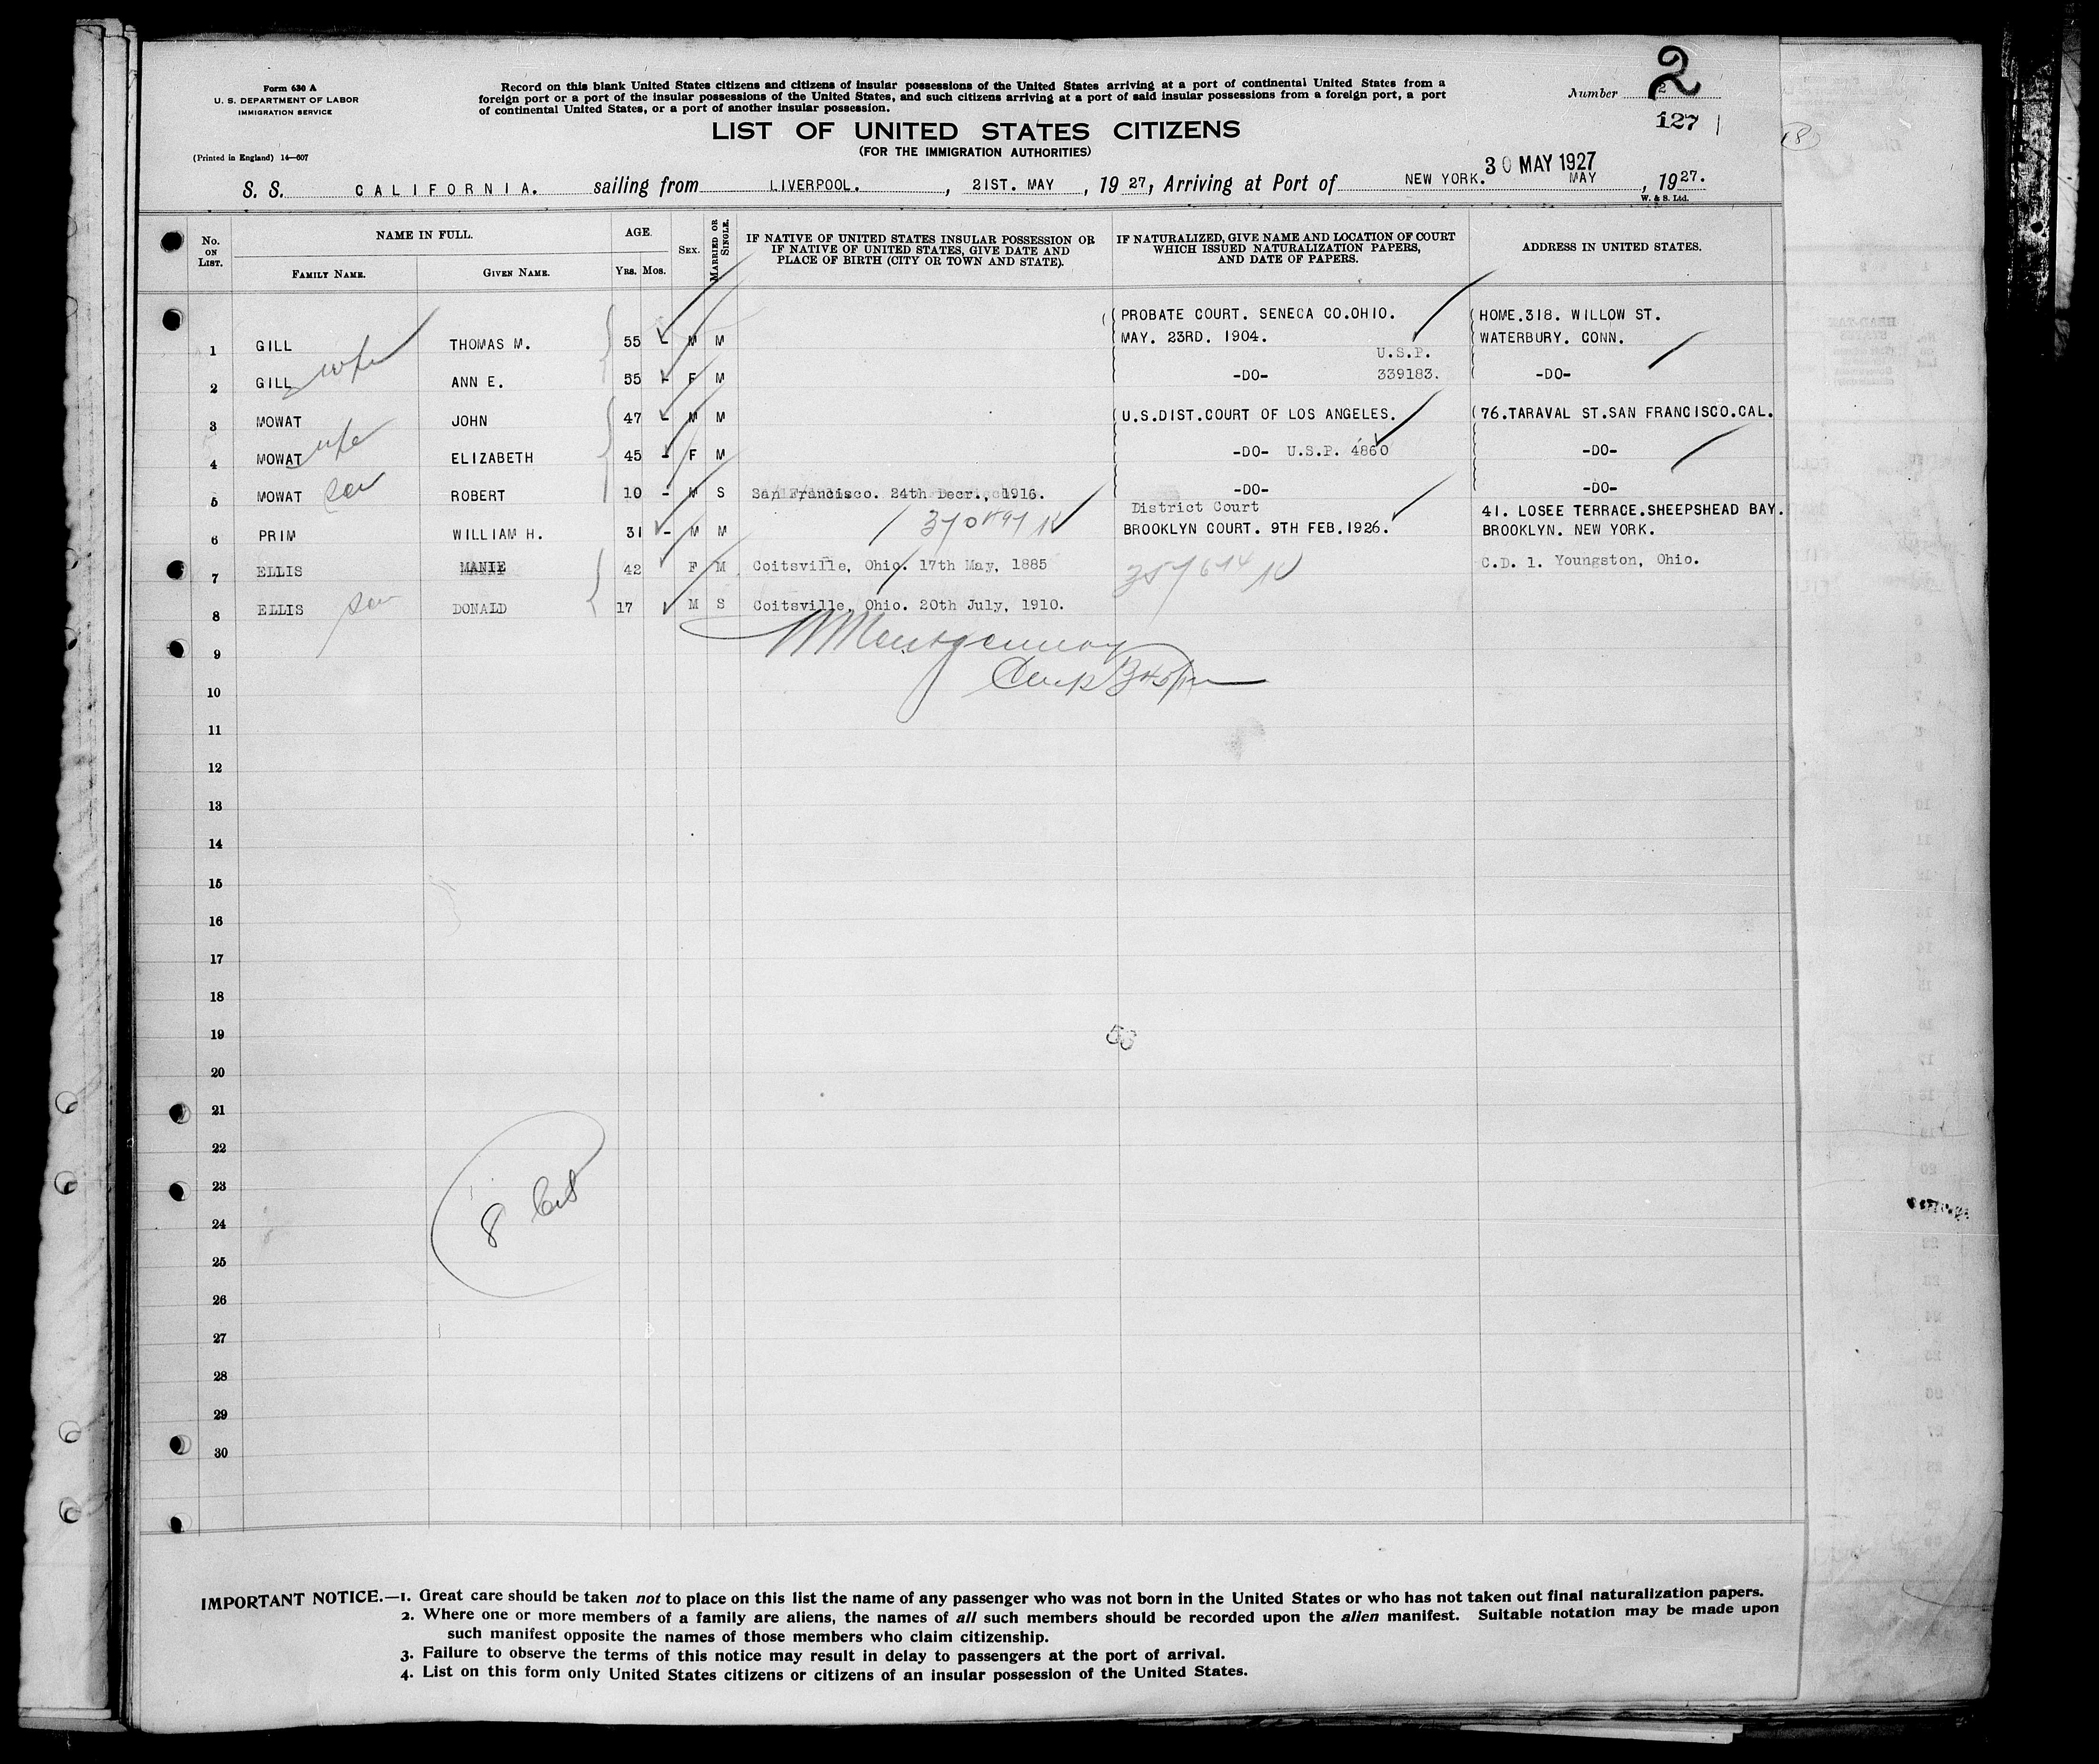 Form 630 A
U. S. DEPARTMENT OF LABOR
IMMIGRATION SERVICE
(Printed in England) 14—607
Record on this blank United States citizens and citizens of insular possessions of the United States arriving at a port of continental United States from a
foreign port or a port of the insular possessions of the United States, and such citizens arriving at a port of said insular possessions from a foreign port, a port
of continental United States, or a port of another insular possession.
Number 2
2
127
LIST OF UNITED STATES CITIZENS
(FOR THE IMMIGRATION AUTHORITIES)
30 MAY 1927
S. S. CALIFORNIA. sailing from LIVERPOOL. , 21ST. MAY , 19 27, Arriving at Port of NEW YORK. MAY , 1927.
W. & S. Ltd.
No. ON LIST. NAME IN FULL. FAMILY NAME. GIVEN NAME. AGE. Yrs. Mos. SEX. MARRIED OR SINGLE. IF NATIVE OF UNITED STATES INSULAR POSSESSION OR IF NATIVE OF UNITED STATES, GIVE DATE AND PLACE OF BIRTH (CITY OR TOWN AND STATE). IF NATURALIZED, GIVE NAME AND LOCATION OF COURT WHICH ISSUED NATURALIZATION PAPERS, AND DATE OF PAPERS. ADDRESS IN UNITED STATES.
PROBATE COURT. SENECA CO.OHIO. HOME.318. WILLOW ST.
1 GILL THOMAS M. 55 - M M MAY. 23RD. 1904. WATERBURY. CONN.
U.S.P.
2 GILL wife ANN E. 55 - F M -DO- 339183. -DO-
3 MOWAT JOHN 47 - M M U.S.DIST.COURT OF LOS ANGELES. 76.TARAVAL ST.SAN FRANCISCO.CAL.
4 MOWAT wife ELIZABETH 45 - F M -DO- U.S.P. 4860 -DO-
5 MOWAT son ROBERT 10 - M S San Francisco. 24th Decr., 1916. -DO- -DO-
District Court 41. LOSEE TERRACE.SHEEPSHEAD BAY.
6 PRIM WILLIAM H. 31 - M M BROOKLYN COURT. 9TH FEB.1926. BROOKLYN. NEW YORK.
7 ELLIS MANIE 42 F M Coitsville, Ohio. 17th May, 1885 C.D. 1. Youngston, Ohio.
8 ELLIS son DONALD 17 M S Coitsville, Ohio. 20th July, 1910.
9
10
11
12
13
14
15
16
17
18
19
20
21
22
23
24
25
26
27
28
29
30
53
8
IMPORTANT NOTICE.—1. Great care should be taken not to place on this list the name of any passenger who was not born in the United States or who has not taken out final naturalization papers.
2. Where one or more members of a family are aliens, the names of all such members should be recorded upon the alien manifest. Suitable notation may be made upon
such manifest opposite the names of those members who claim citizenship.
3. Failure to observe the terms of this notice may result in delay to passengers at the port of arrival.
4. List on this form only United States citizens or citizens of an insular possession of the United States.